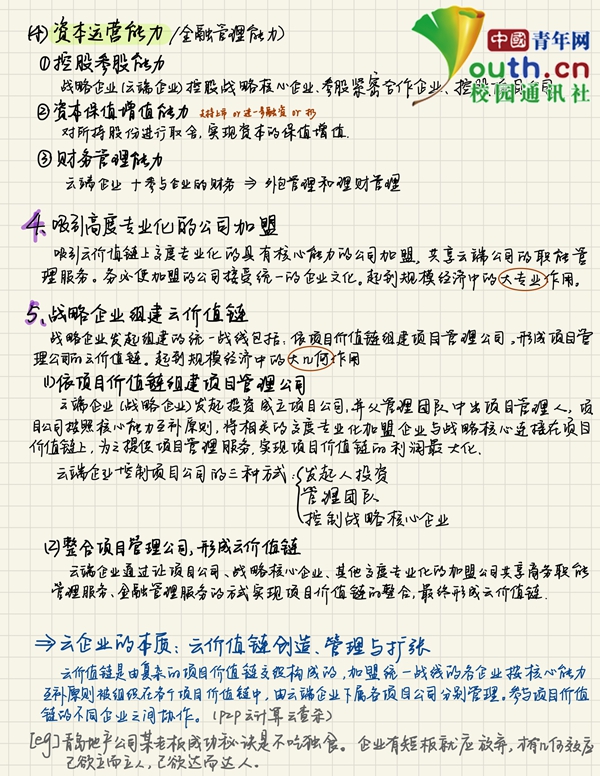 (4) 资本运营能力 (金融管理能力)
中國青年网
Youth.cn
校园通讯社
①控股参股能力
战略企业(云端企业)控股战略核心企业、参股紧密合作企业、控股
②资本保值增值能力 支持上市 or 进一步融资 or
对所持股份进行取舍,实现资本的保值增值.
③财务管理能力
云端企业 + 参与企业的财务 ⇒ 外包管理和理财管理
4.吸引高度专业化的公司加盟
吸引云价值链上高度专业化的具有核心能力的公司加盟,共享云端公司的职能管
理服务。务必使加盟的公司接受统一的企业文化。起到规模经济中的大专业作用。
5.战略企业组建云价值链
战略企业发起组建的统一战线包括:依项目价值链组建项目管理公司,形成项目管
理公司的云价值链。起到规模经济中的大几何作用
(1)依项目价值链组建项目管理公司
云端企业(战略企业)发起投资成立项目公司,并从管理团队中出项目管理人,项
目公司按照核心能力互补原则,将相关的高度专业化加盟企业与战略核心连接在项目
价值链上,为之提供项目管理服务,实现项目价值链的利润最大化.
云端企业控制项目公司的三种方式:{发起人投资
管理团队
控制战略核心企业
(2)整合项目管理公司,形成云价值链
云端企业通过让项目公司、战略核心企业、其他高度专业化的加盟公司共享商务职能
管理服务、金融管理服务的方式实现项目价值链的整合,最终形成云价值链.
⇒云企业的本质:云价值链创造、管理与扩张
云价值链是由复杂的项目价值链交织构成的,加盟统一战线的各企业按核心能力
互补原则被组织在各个项目价值链中,由云端企业下属各项目公司分别管理。参与项目价值
链的不同企业之间协作。(P2P 云计算 云查杀)
[eg]青岛地产公司某老板成功秘诀是不吃独食。企业有短板就应放弃,才有几何效应
己欲立而立人,己欲达而达人。